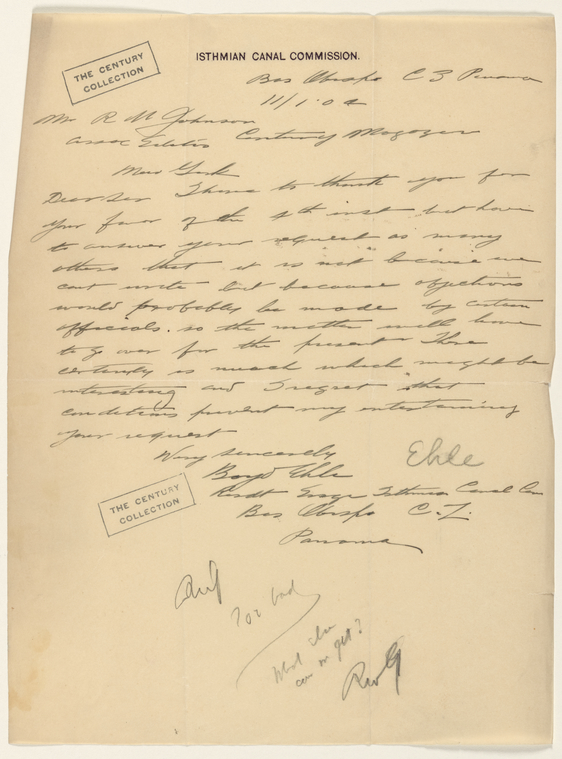 THE CENTURY
COLLECTION
ISTHMIAN CANAL COMMISSION.
Bas Obispo C Z Panama
11/1.04
Mr R U Johnson
Assoc Editor Century Magazine
New York
Dear Sir I have to thank you for
your favor of the 4th inst but have
to answer your request as many
others that it is not because we
cant write but because objections
would probably be made by certain
officials. so the matter will have
to go over for the present There
certainly is much which might be
interesting and I regret that
conditions prevent my entertaining
your request
Very sincerely
Boyd Ehle
Ehle
Resdt Engr Isthmian Canal Com
Bas Obispo C. Z.
Panama
THE CENTURY
COLLECTION
Too bad
What else
can we get?
RWG